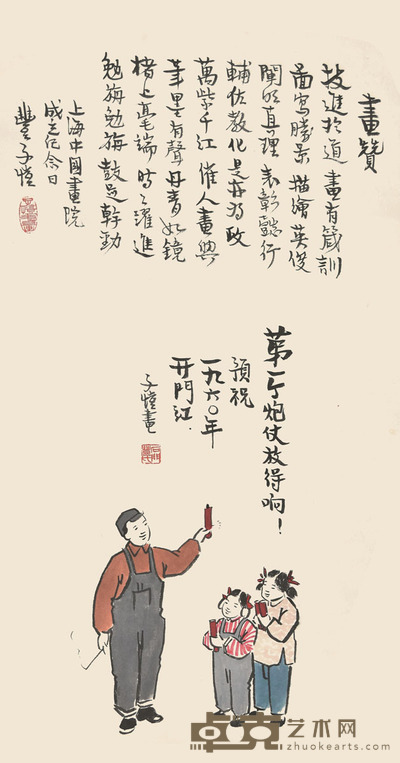 畫贊
技進於道 畫有箴訓
圖寫勝景 描繪英俊
闡明真理 表彰懿行
輔佐教化 是亦為政
萬紫千江 催人畫興
筆墨有聲 丹青如鏡
楮上毫端 時時躍進
勉旃勉旃 鼓足幹勁
上海中國畫院
成立纪念日
豐子愷
第一个炮仗放得响！
預祝
一九六〇年
开門江
子愷畫
卓克艺术网
zhuokearts.com